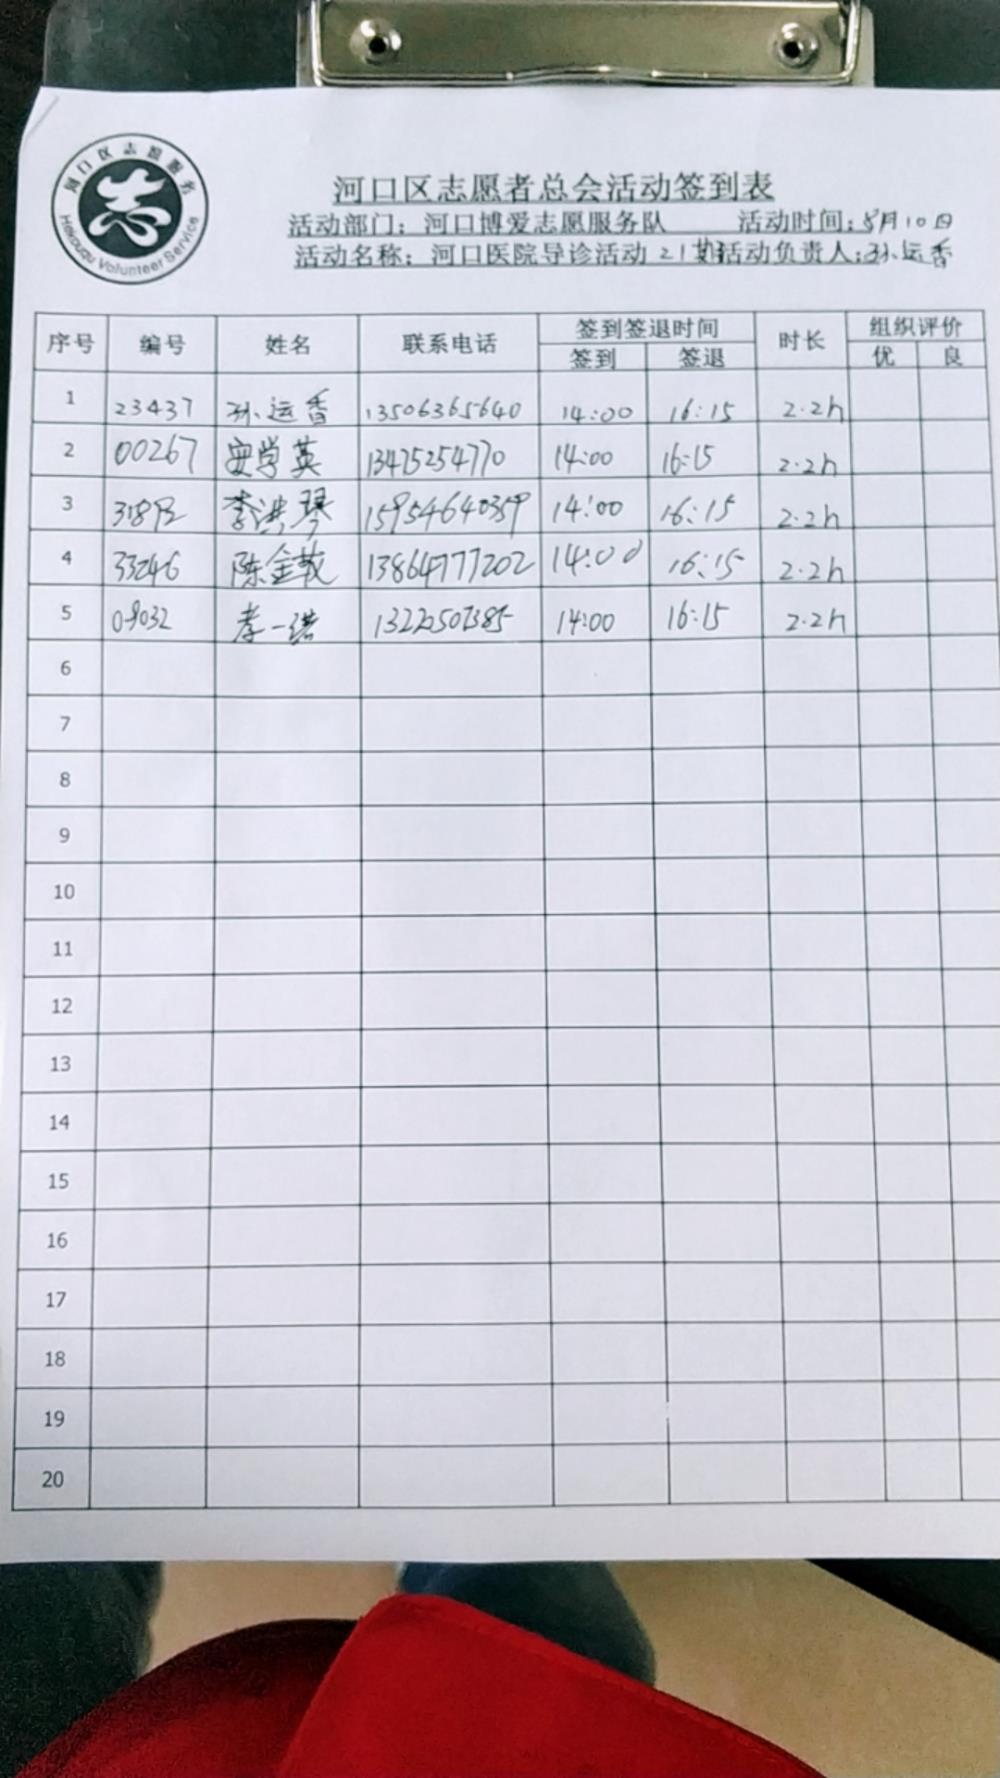 河口区志愿服务
志
Hekouqu Volunteer Service
河口区志愿者总会活动签到表
活动部门：河口博爱志愿服务队 活动时间：5月10日
活动名称：河口医院导诊活动21期活动负责人：孙运香
序号 编号 姓名 联系电话 签到签退时间 时长 组织评价
签到 签退 优 良
1 23437 孙运香 13506365640 14:00 16:15 2.2h
2 00267 安学英 13475254770 14:00 16:15 2.2h
3 李洪琴 15954640359 14:00 16:15 2.2h
4 33246 陈金 13864777202 14:00 16:15 2.2h
5 09032 李一诺 14:00 16:15 2.2h
6
7
8
9
10
11
12
13
14
15
16
17
18
19
20